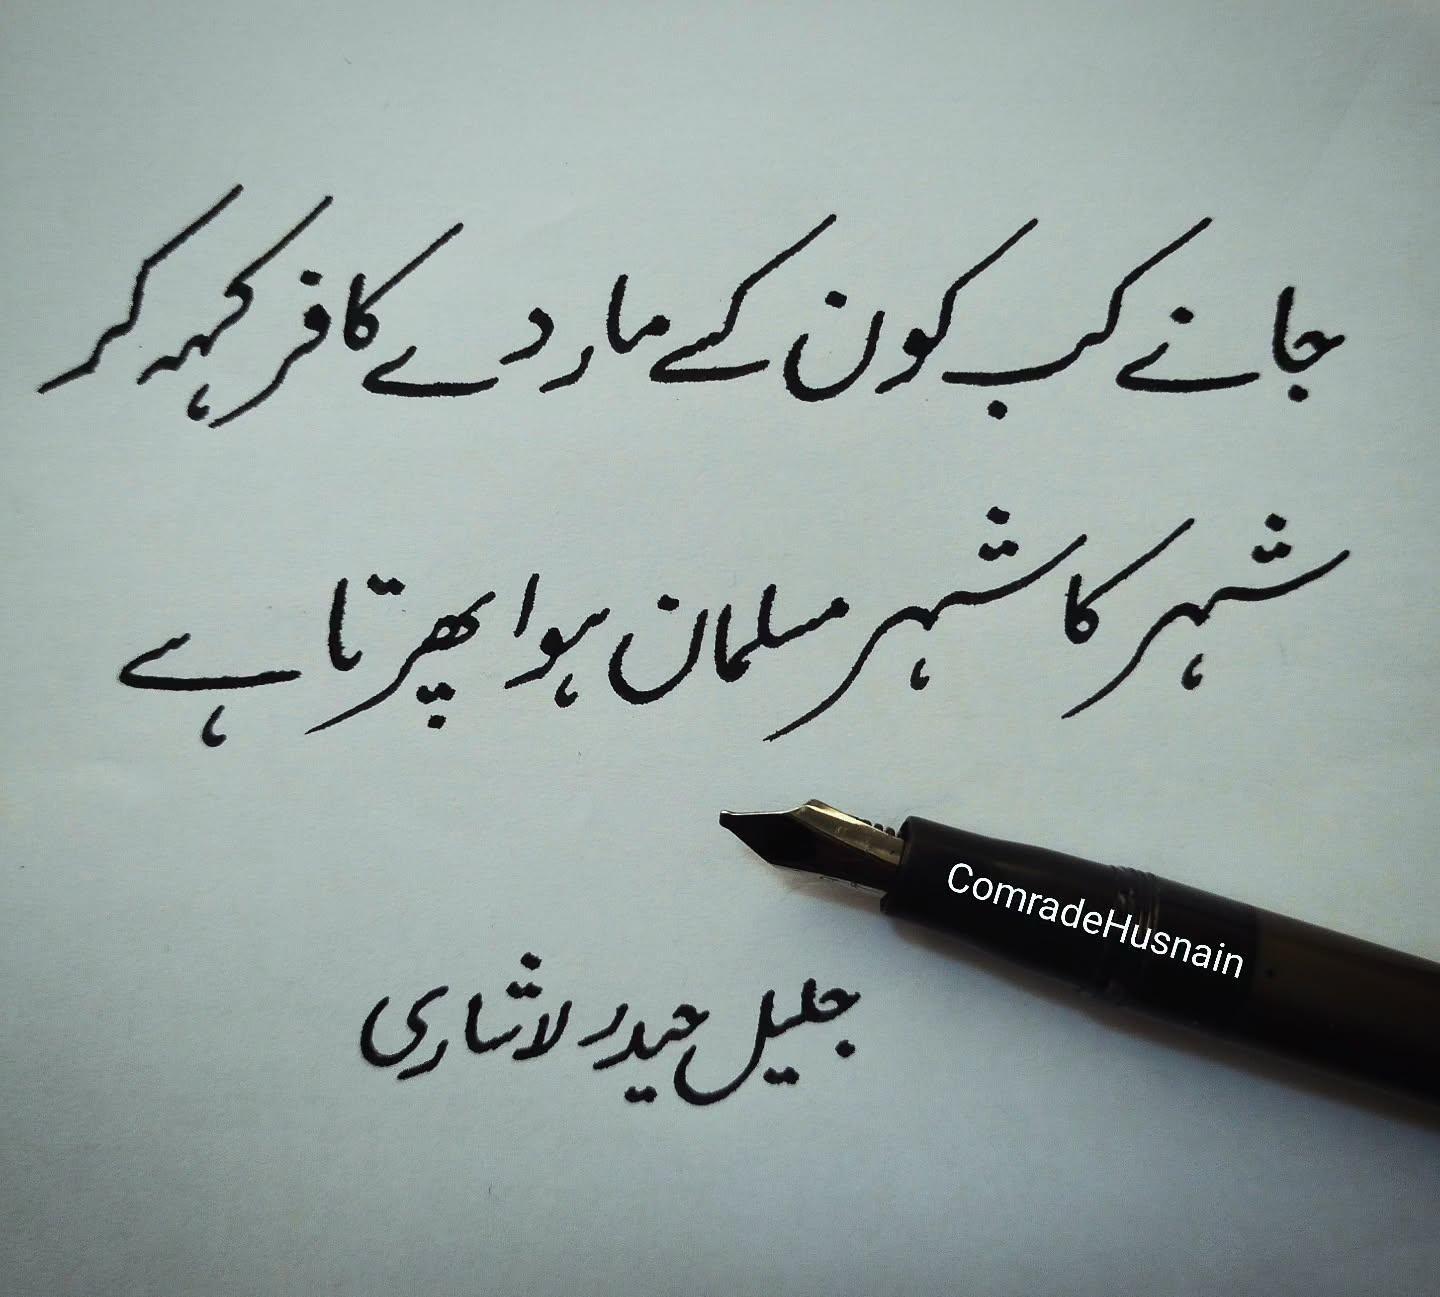 جانے کب کون کسے مار دے کافر کہہ کر
شہر کا شہر مسلمان ہوا پھرتا ہے
ComradeHusnain
جلیل حیدر لاشاری